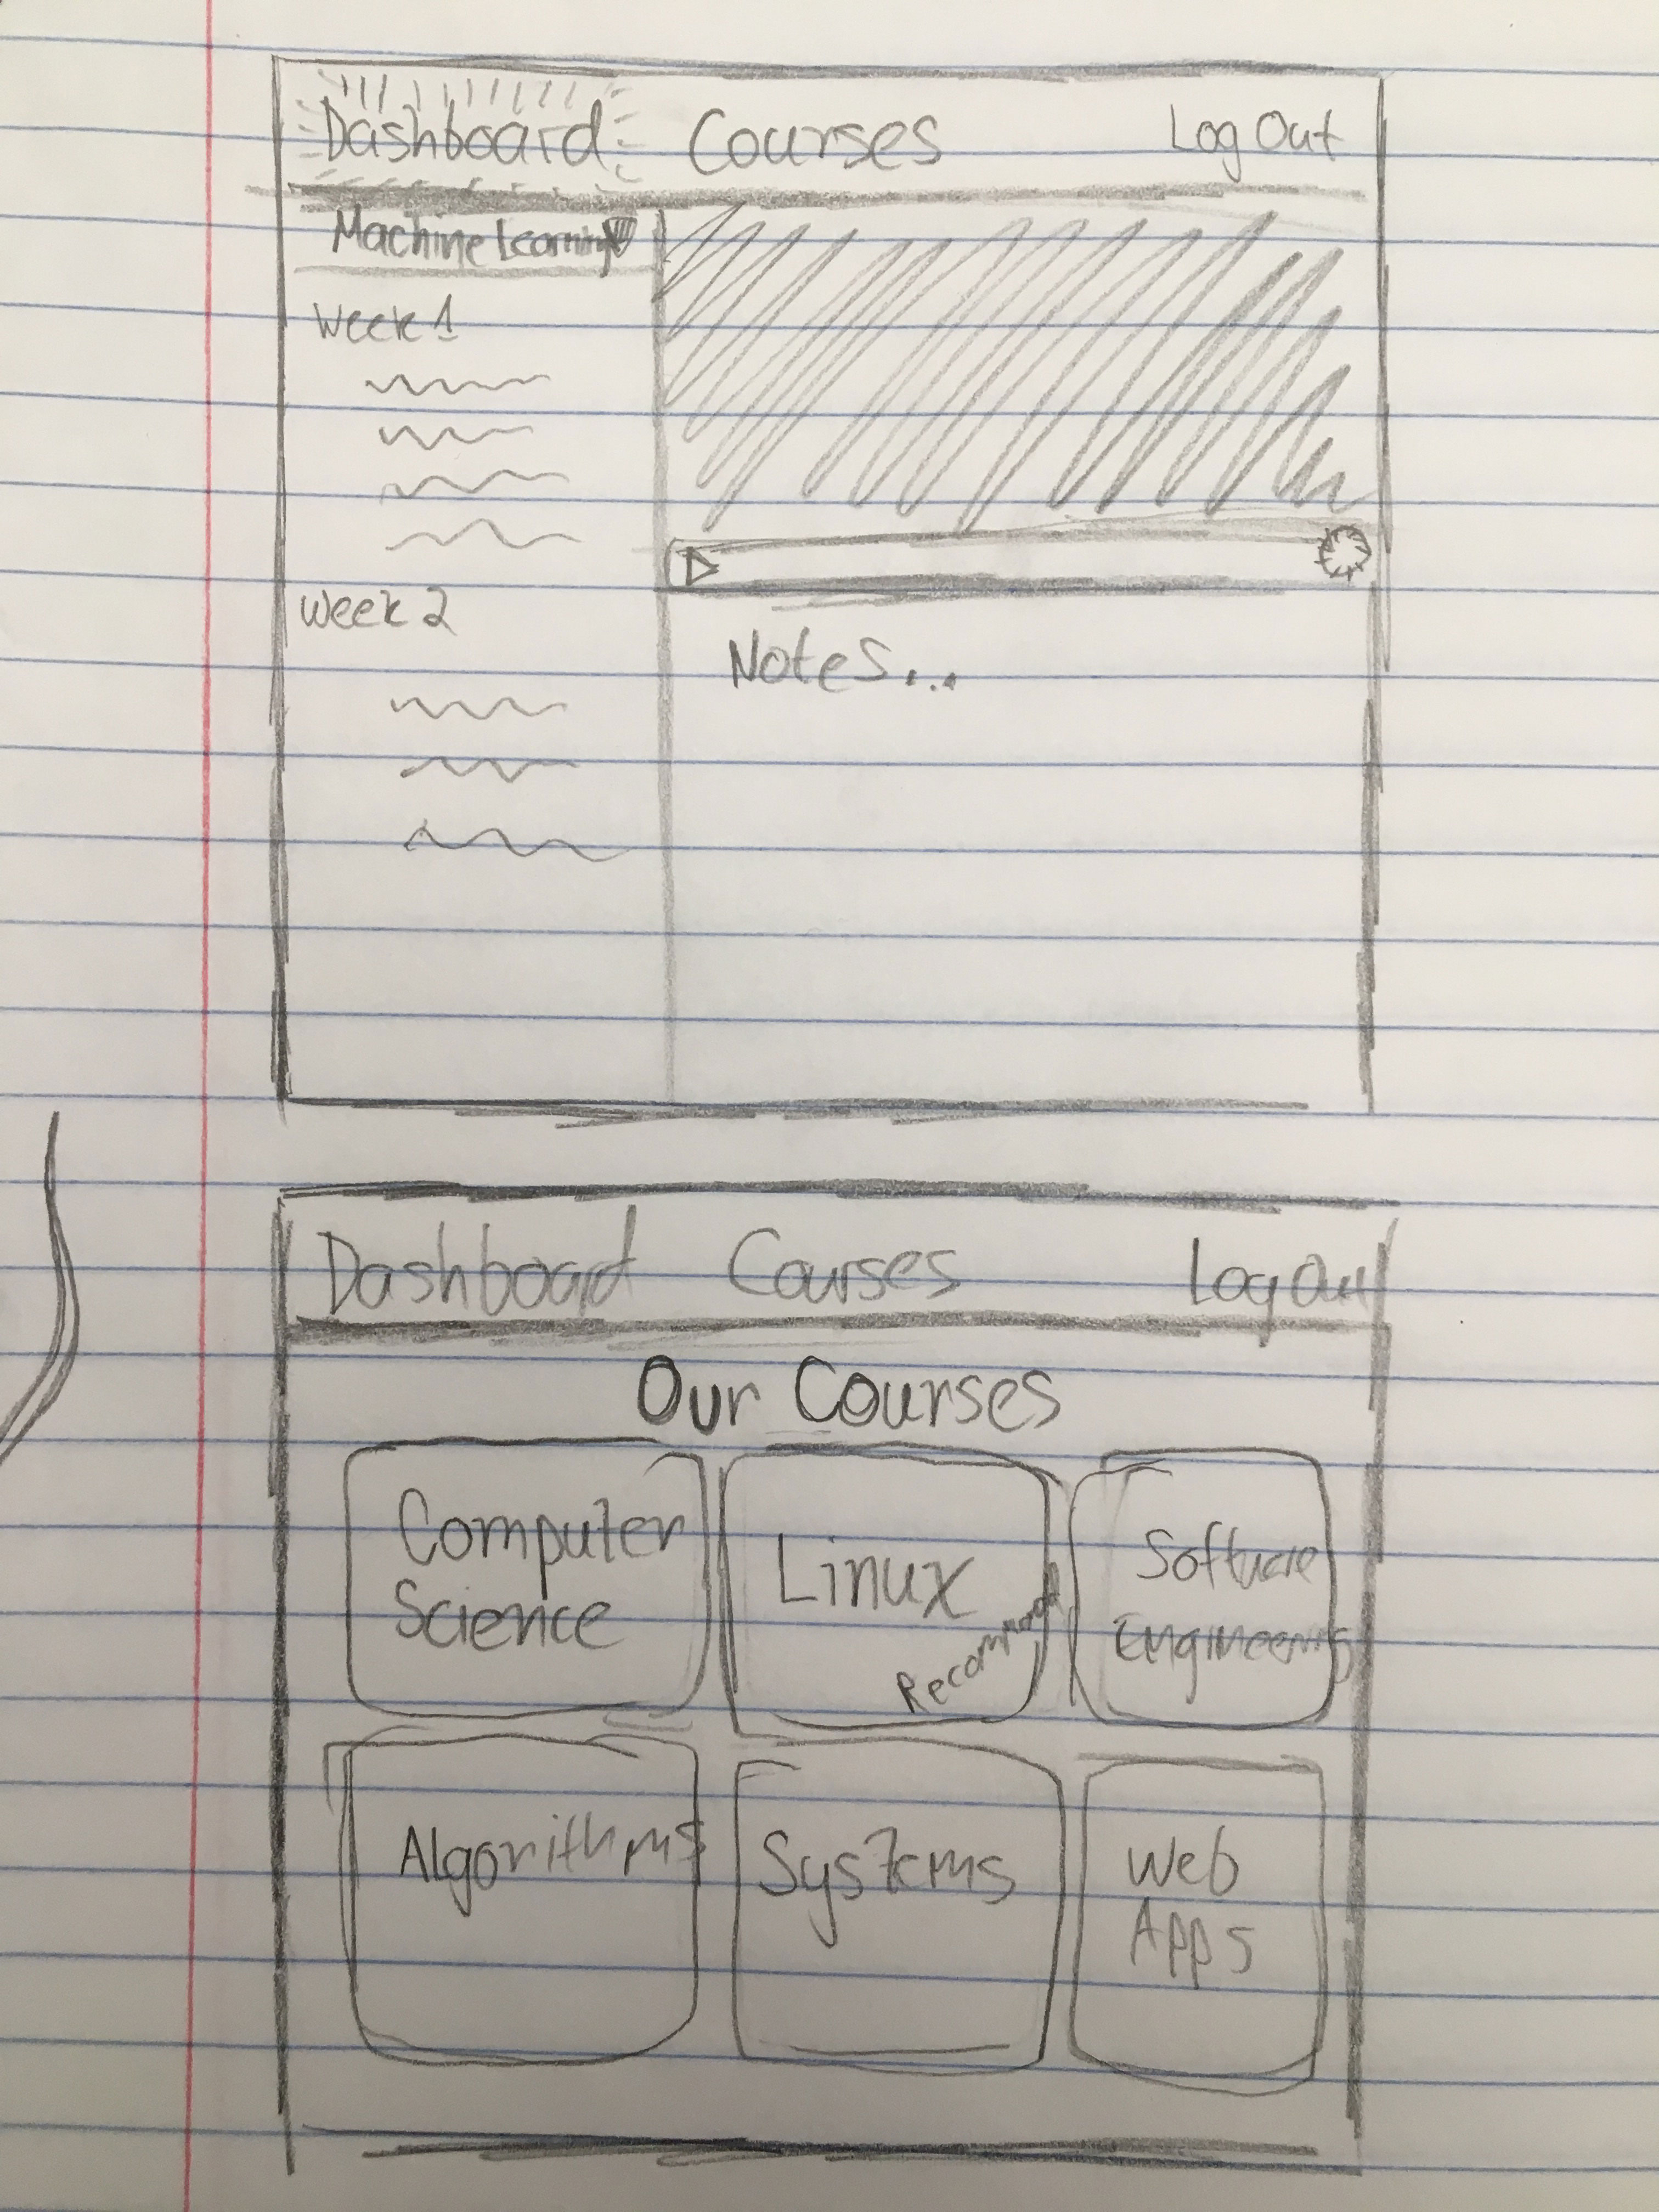 Dashboard Courses Log Out
Machine Learning
Week 1
Week 2
Notes...
Dashboard Courses Log Out
Our Courses
Computer
Science
Linux
Software
Engineering
Algorithms
Systems
Web
Apps